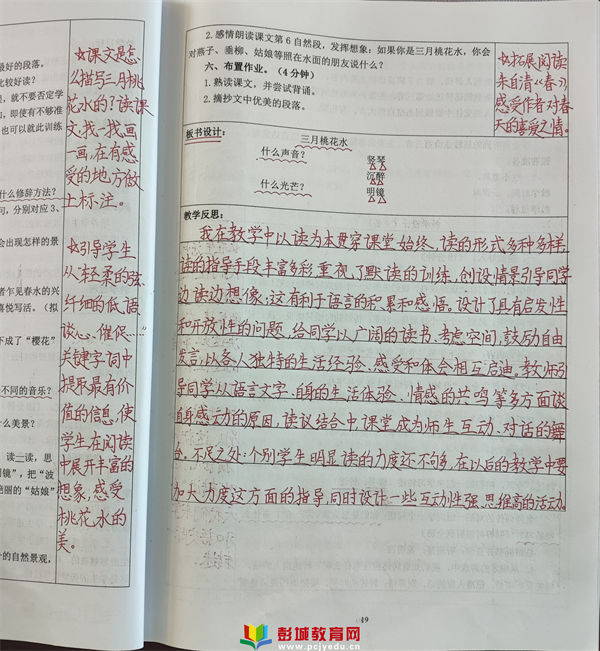 最好的段落。
比较好读？
，就不要否定学
，即使有不够准
也可以就此训练
什么修辞方法？
句，分别对应3、
会出现怎样的景
者乍见春水的兴
喜悦写活。（拟
下成了“樱花”
不同的音乐？
什么美景？
读一读，思
明镜”，把“波
艳丽的“姑娘”
的自然景观，
课文是怎
么描写三月桃
花水的？读课
文，找一找，画
一画，在有感
受的地方做
上标注。
引导学生
从“轻柔的弦、
纤细的低语、
谈心、催促……”
关键字词中
提取最有价
值的信息，使
学生在阅读
中展开丰富的
想象，感受
桃花水的
美。
2.感情朗读课文第6自然段，发挥想象：如果你是三月桃花水，你会
对燕子、垂柳、姑娘等照在水面的朋友说什么？
六、布置作业。（4分钟）
1.熟读课文，并尝试背诵。
2.摘抄文中优美的段落。
拓展阅读
朱自清《春》，
感受作者对春
天的喜爱之情。
板书设计：
三月桃花水
什么声音？ 竖琴
沉醉
什么光芒？ 明镜
教学反思：
我在教学中以读为本贯穿课堂始终，读的形式多种多样，
读的指导手段丰富多彩，重视了默读的训练，创设情景引导同学
边读边想像，这有利于语言的积累和感悟。设计了具有启发性
和开放性的问题，给同学以广阔的读书、考虑空间，鼓励自由
发言，以各人独特的生活经验、感受和体会相互启迪。教师引
导同学从语言文字、自身的生活体验、情感的共鸣等多方面谈
自身感动的原因，读议结合中，课堂成为师生互动、对话的舞
台。不足之处：个别学生明显读的力度还不够，在以后的教学中要
加大力度这方面的指导，同时设计一些互动性强，思维高的活动。
49
彭城教育网
www.pcjyedu.cn